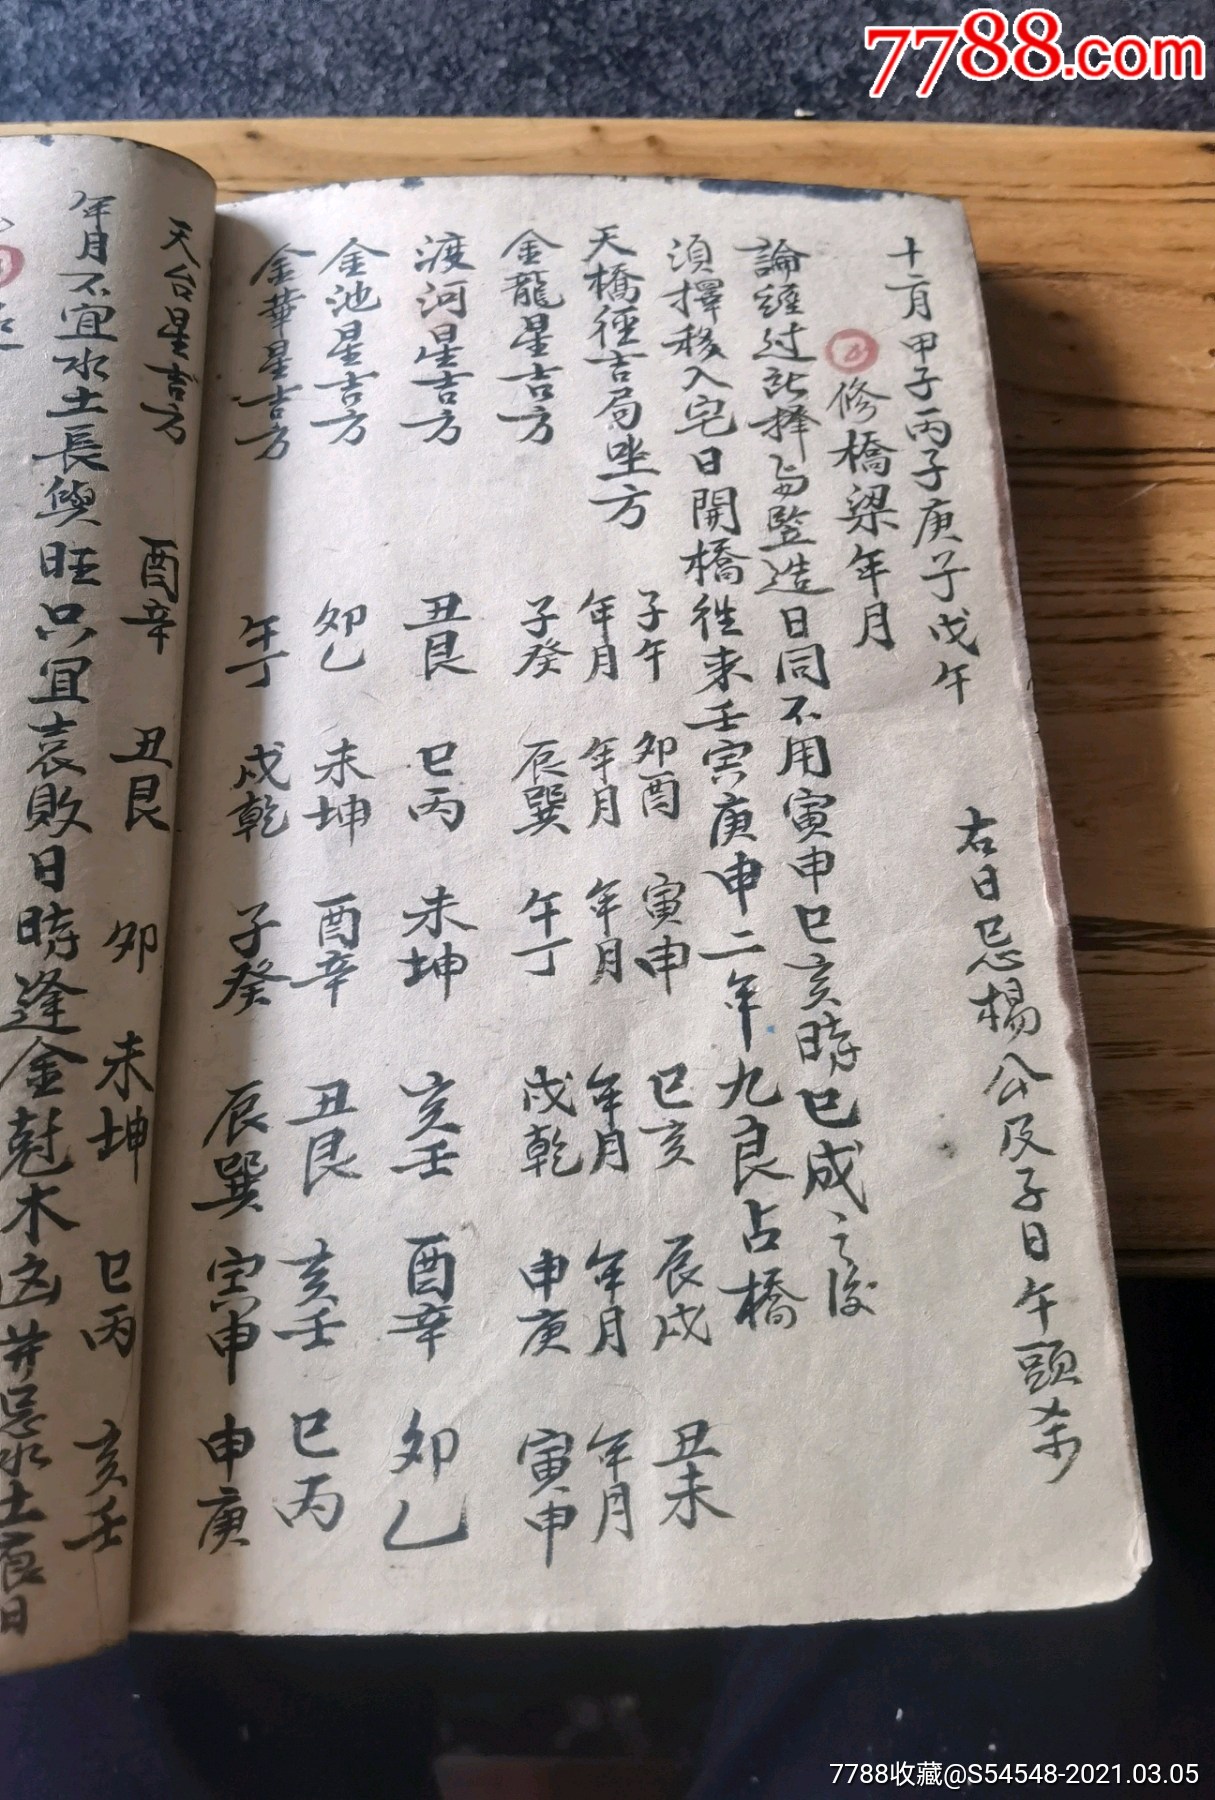 7788.com
十二月甲子丙子庚子戊午
右日忌楊公及子日午頭杀
修橋梁年月
論經过 擇与豎造日同不用寅申巳亥時已成之後
須擇移入宅日開橋徃来壬寅庚申二年九良占橋
天橋徑吉局坐方 子午年月 卯酉年月 寅申年月 巳亥年月 辰戌年月 丑未年月
金龍星吉方 子癸 辰巽 午丁 戌乾 申庚 寅申
渡河星吉方 丑艮 巳丙 未坤 亥壬 酉辛 卯乙
金池星吉方 卯乙 未坤 酉辛 丑艮 亥壬 巳丙
金華星吉方 午丁 戌乾 子癸 辰巽 寅申 申庚
天台星吉方 酉辛 丑艮 卯 未坤 巳丙 亥壬
年月不宜水土長 旺只宜衰敗日時逢金尅木凶并忌水土辰日
7788收藏@S54548-2021.03.05